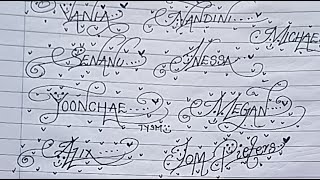 VANIA NANDINI MICHAE
SENANU NESSA
YOONCHAE MEGAN
TYSM
ALIX TOM Riefers